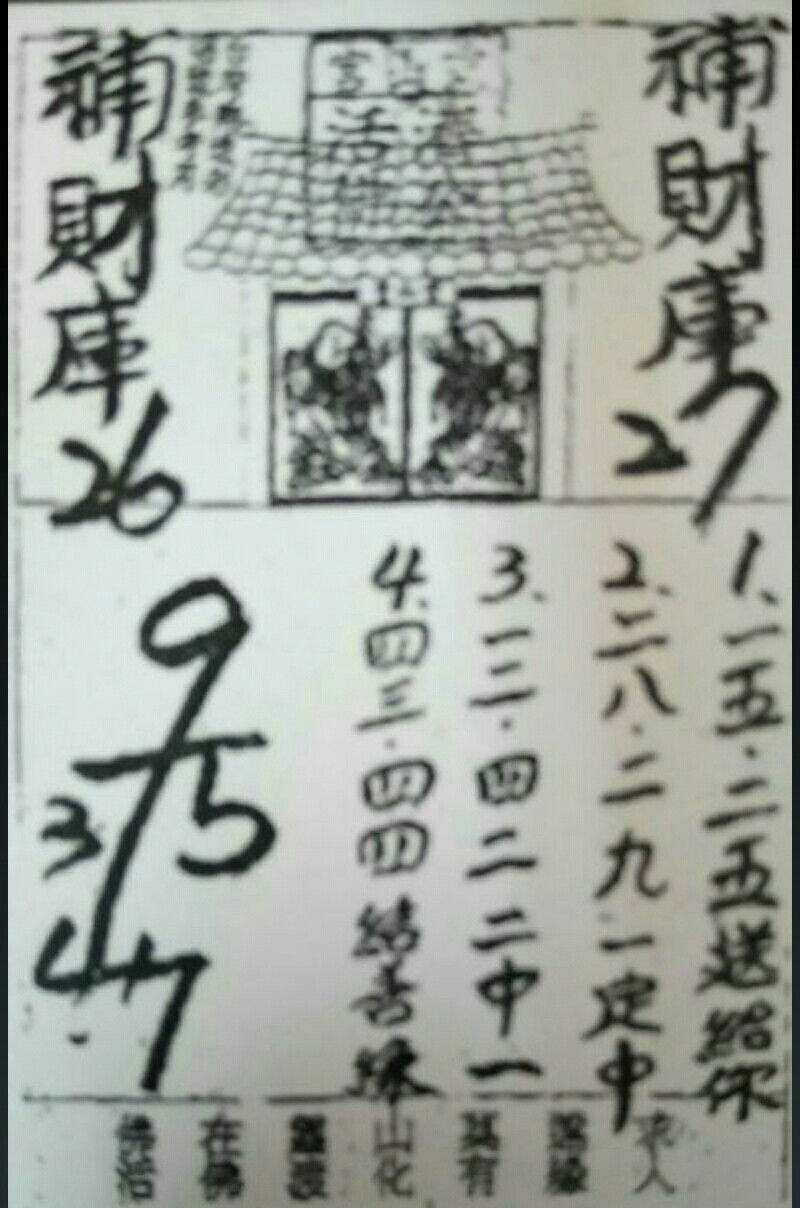 補財庫27
補財庫26
活佛 濟公
1、一五．二五送給你
2、二八．二九一定中
3、一二．四二二中一
4、四三．四四結善緣
9
5
3
47
求人
莫有
山化
在佛
佛治